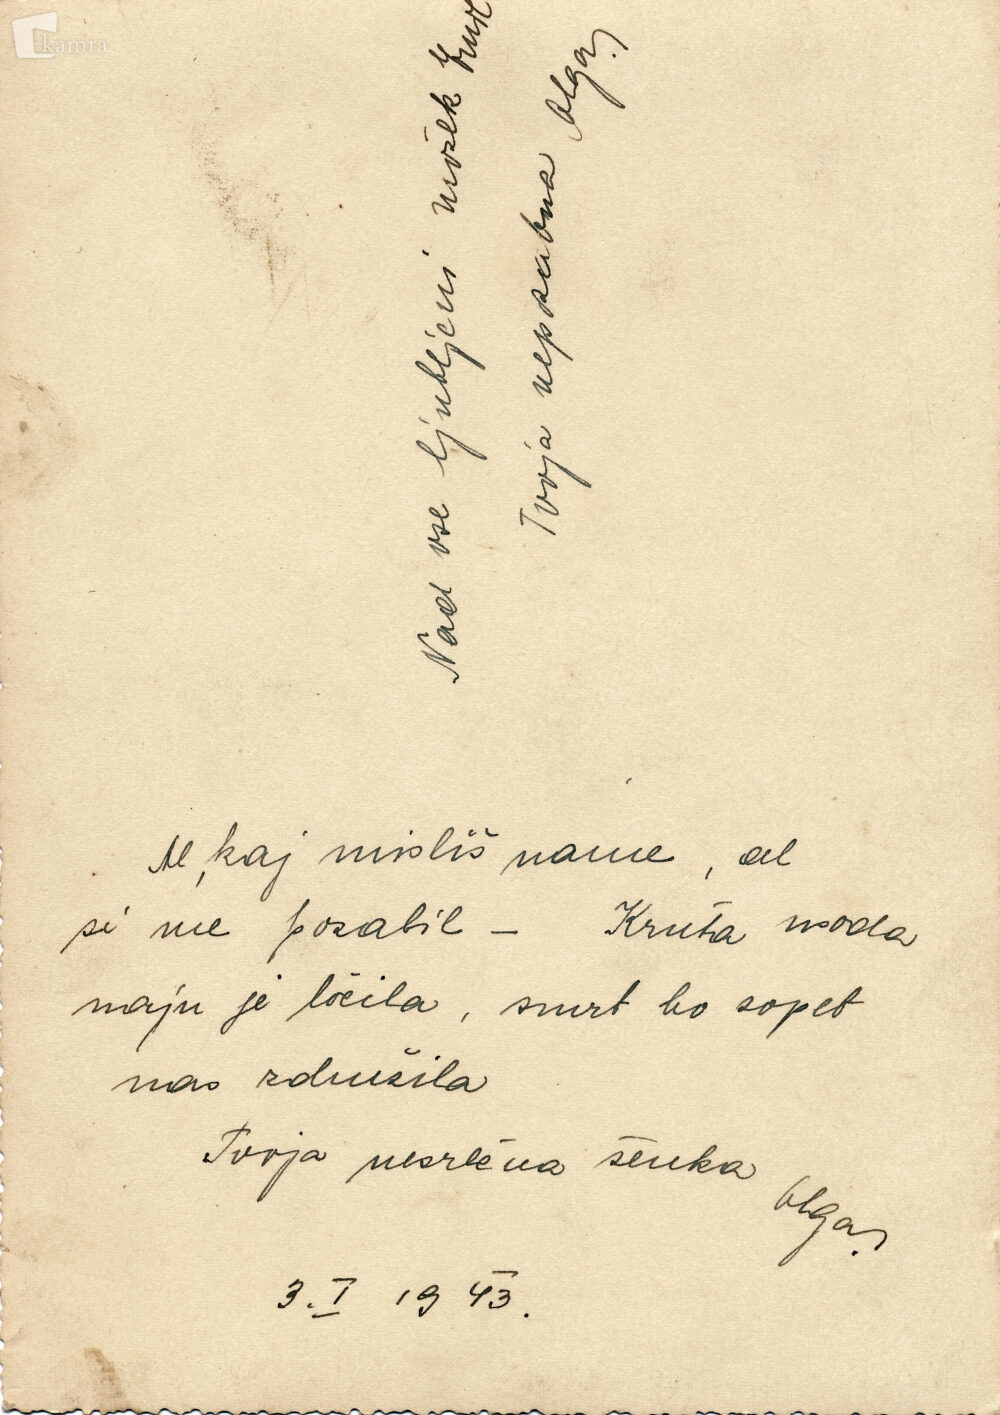 kamra
Nad vse ljubljeni možek
Tvoja nepozabna Olga.
Al kaj misliš name, al
si me pozabil – Kruta usoda
naju je ločila, smrt bo sopet
nas združila
Tvoja nesrečna ženka
Olga.
3. I 1943.